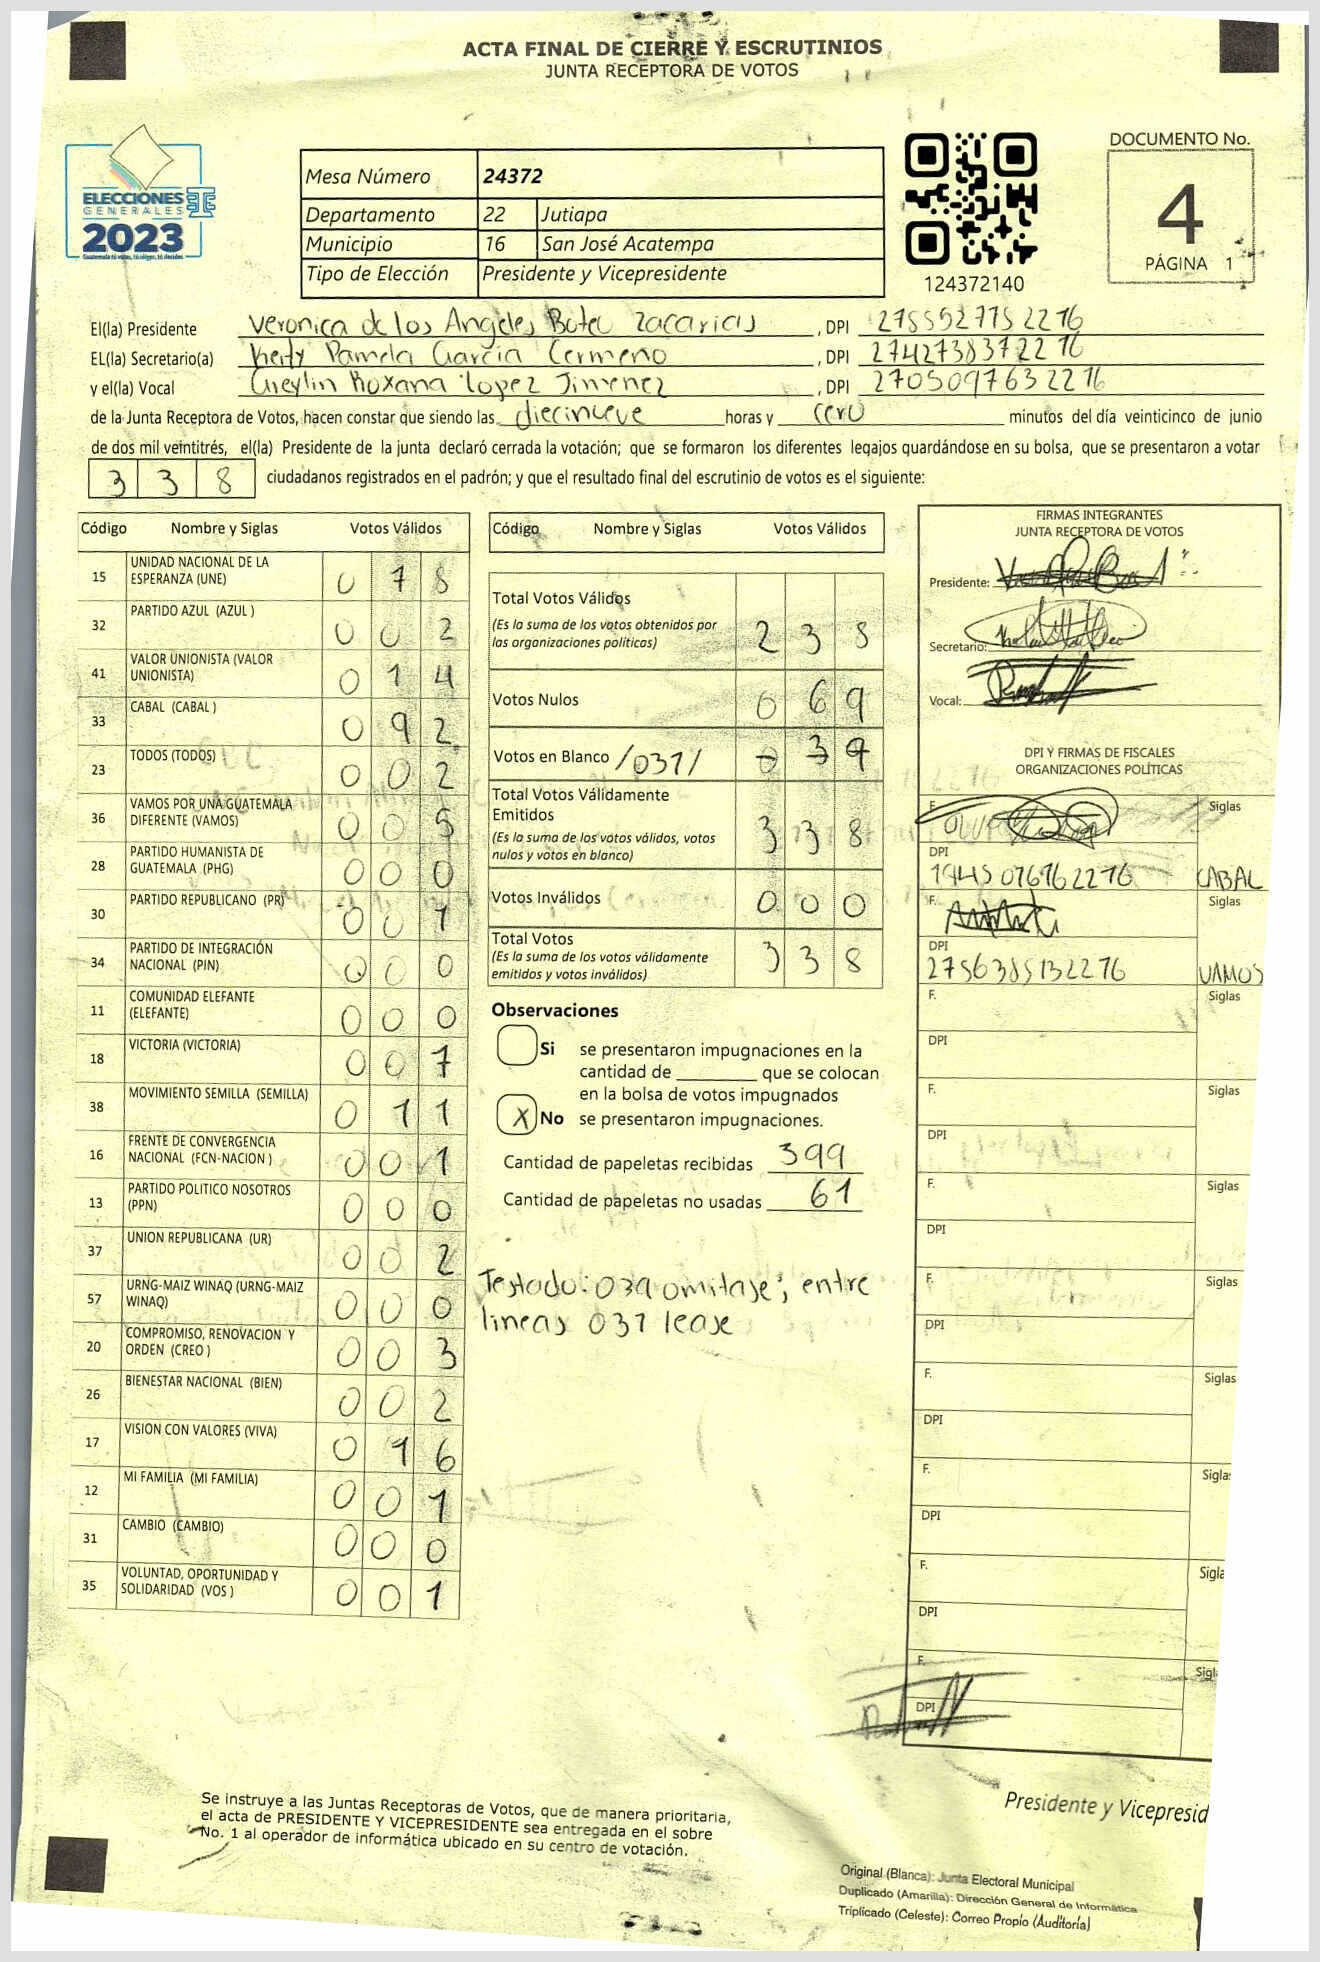 ACTA FINAL DE CIERRE Y ESCRUTINIOS
JUNTA RECEPTORA DE VOTOS
ELECCIONES
GENERALES
2023
Guatemala tú votas, tú eliges, tú decides
Mesa Número 24372
Departamento 22 Jutiapa
Municipio 16 San José Acatempa
Tipo de Elección Presidente y Vicepresidente
124372140
DOCUMENTO No.
4
PÁGINA 1
El(la) Presidente Veronica de los Angeles Zacarias, DPI 2755527752216
EL(la) Secretario(a) Pamela Garcia Cermeño, DPI 2742738372216
y el(la) Vocal Roxana Lopez Jimenez, DPI 2705097632216
de la Junta Receptora de Votos, hacen constar que siendo las diecinueve horas y cero minutos del día veinticinco de junio
de dos mil veintitrés, el(la) Presidente de la junta declaró cerrada la votación; que se formaron los diferentes legajos guardándose en su bolsa, que se presentaron a votar
338 ciudadanos registrados en el padrón; y que el resultado final del escrutinio de votos es el siguiente:
Código Nombre y Siglas Votos Válidos
15 UNIDAD NACIONAL DE LA ESPERANZA (UNE) 0 7 8
32 PARTIDO AZUL (AZUL ) 0 0 2
41 VALOR UNIONISTA (VALOR UNIONISTA) 0 1 4
33 CABAL (CABAL ) 0 9 2
23 TODOS (TODOS) 0 0 2
36 VAMOS POR UNA GUATEMALA DIFERENTE (VAMOS) 0 0 5
28 PARTIDO HUMANISTA DE GUATEMALA (PHG) 0 0 0
30 PARTIDO REPUBLICANO (PR) 0 0 1
34 PARTIDO DE INTEGRACIÓN NACIONAL (PIN) 0 0 0
11 COMUNIDAD ELEFANTE (ELEFANTE) 0 0 0
18 VICTORIA (VICTORIA) 0 0 7
38 MOVIMIENTO SEMILLA (SEMILLA) 0 1 1
16 FRENTE DE CONVERGENCIA NACIONAL (FCN-NACION ) 0 0 1
13 PARTIDO POLITICO NOSOTROS (PPN) 0 0 0
37 UNION REPUBLICANA (UR) 0 0 2
57 URNG-MAIZ WINAQ (URNG-MAIZ WINAQ) 0 0 0
20 COMPROMISO, RENOVACION Y ORDEN (CREO ) 0 0 3
26 BIENESTAR NACIONAL (BIEN) 0 0 2
17 VISION CON VALORES (VIVA) 0 1 6
12 MI FAMILIA (MI FAMILIA) 0 0 1
31 CAMBIO (CAMBIO) 0 0 0
35 VOLUNTAD, OPORTUNIDAD Y SOLIDARIDAD (VOS ) 0 0 1
Código Nombre y Siglas Votos Válidos
Total Votos Válidos
(Es la suma de los votos obtenidos por
las organizaciones políticas) 2 3 8
Votos Nulos 0 6 9
Votos en Blanco /031/ 0 3 9
Total Votos Válidamente
Emitidos
(Es la suma de los votos válidos, votos
nulos y votos en blanco) 3 3 8
Votos Inválidos 0 0 0
Total Votos
(Es la suma de los votos válidamente
emitidos y votos inválidos) 3 3 8
Observaciones
Si se presentaron impugnaciones en la
cantidad de ________ que se colocan
en la bolsa de votos impugnados
X No se presentaron impugnaciones.
Cantidad de papeletas recibidas 399
Cantidad de papeletas no usadas 61
Testado: 039 omitase; entre
lineas 031 lease
FIRMAS INTEGRANTES
JUNTA RECEPTORA DE VOTOS
Presidente:
Secretario:
Vocal:
DPI Y FIRMAS DE FISCALES
ORGANIZACIONES POLÍTICAS
F. Siglas
DPI
1945076762216 CABAL
F. Siglas
DPI
2756385132216 VAMOS
F. Siglas
DPI
F. Siglas
DPI
F. Siglas
DPI
F. Siglas
DPI
F. Siglas
DPI
F. Sigla
DPI
F. Sigla
DPI
F. Sigl
DPI
Se instruye a las Juntas Receptoras de Votos, que de manera prioritaria,
el acta de PRESIDENTE Y VICEPRESIDENTE sea entregada en el sobre
No. 1 al operador de informática ubicado en su centro de votación.
Presidente y Vicepresid
Original (Blanca): Junta Electoral Municipal
Duplicado (Amarilla): Dirección General de Informática
Triplicado (Celeste): Correo Propio (Auditoría)